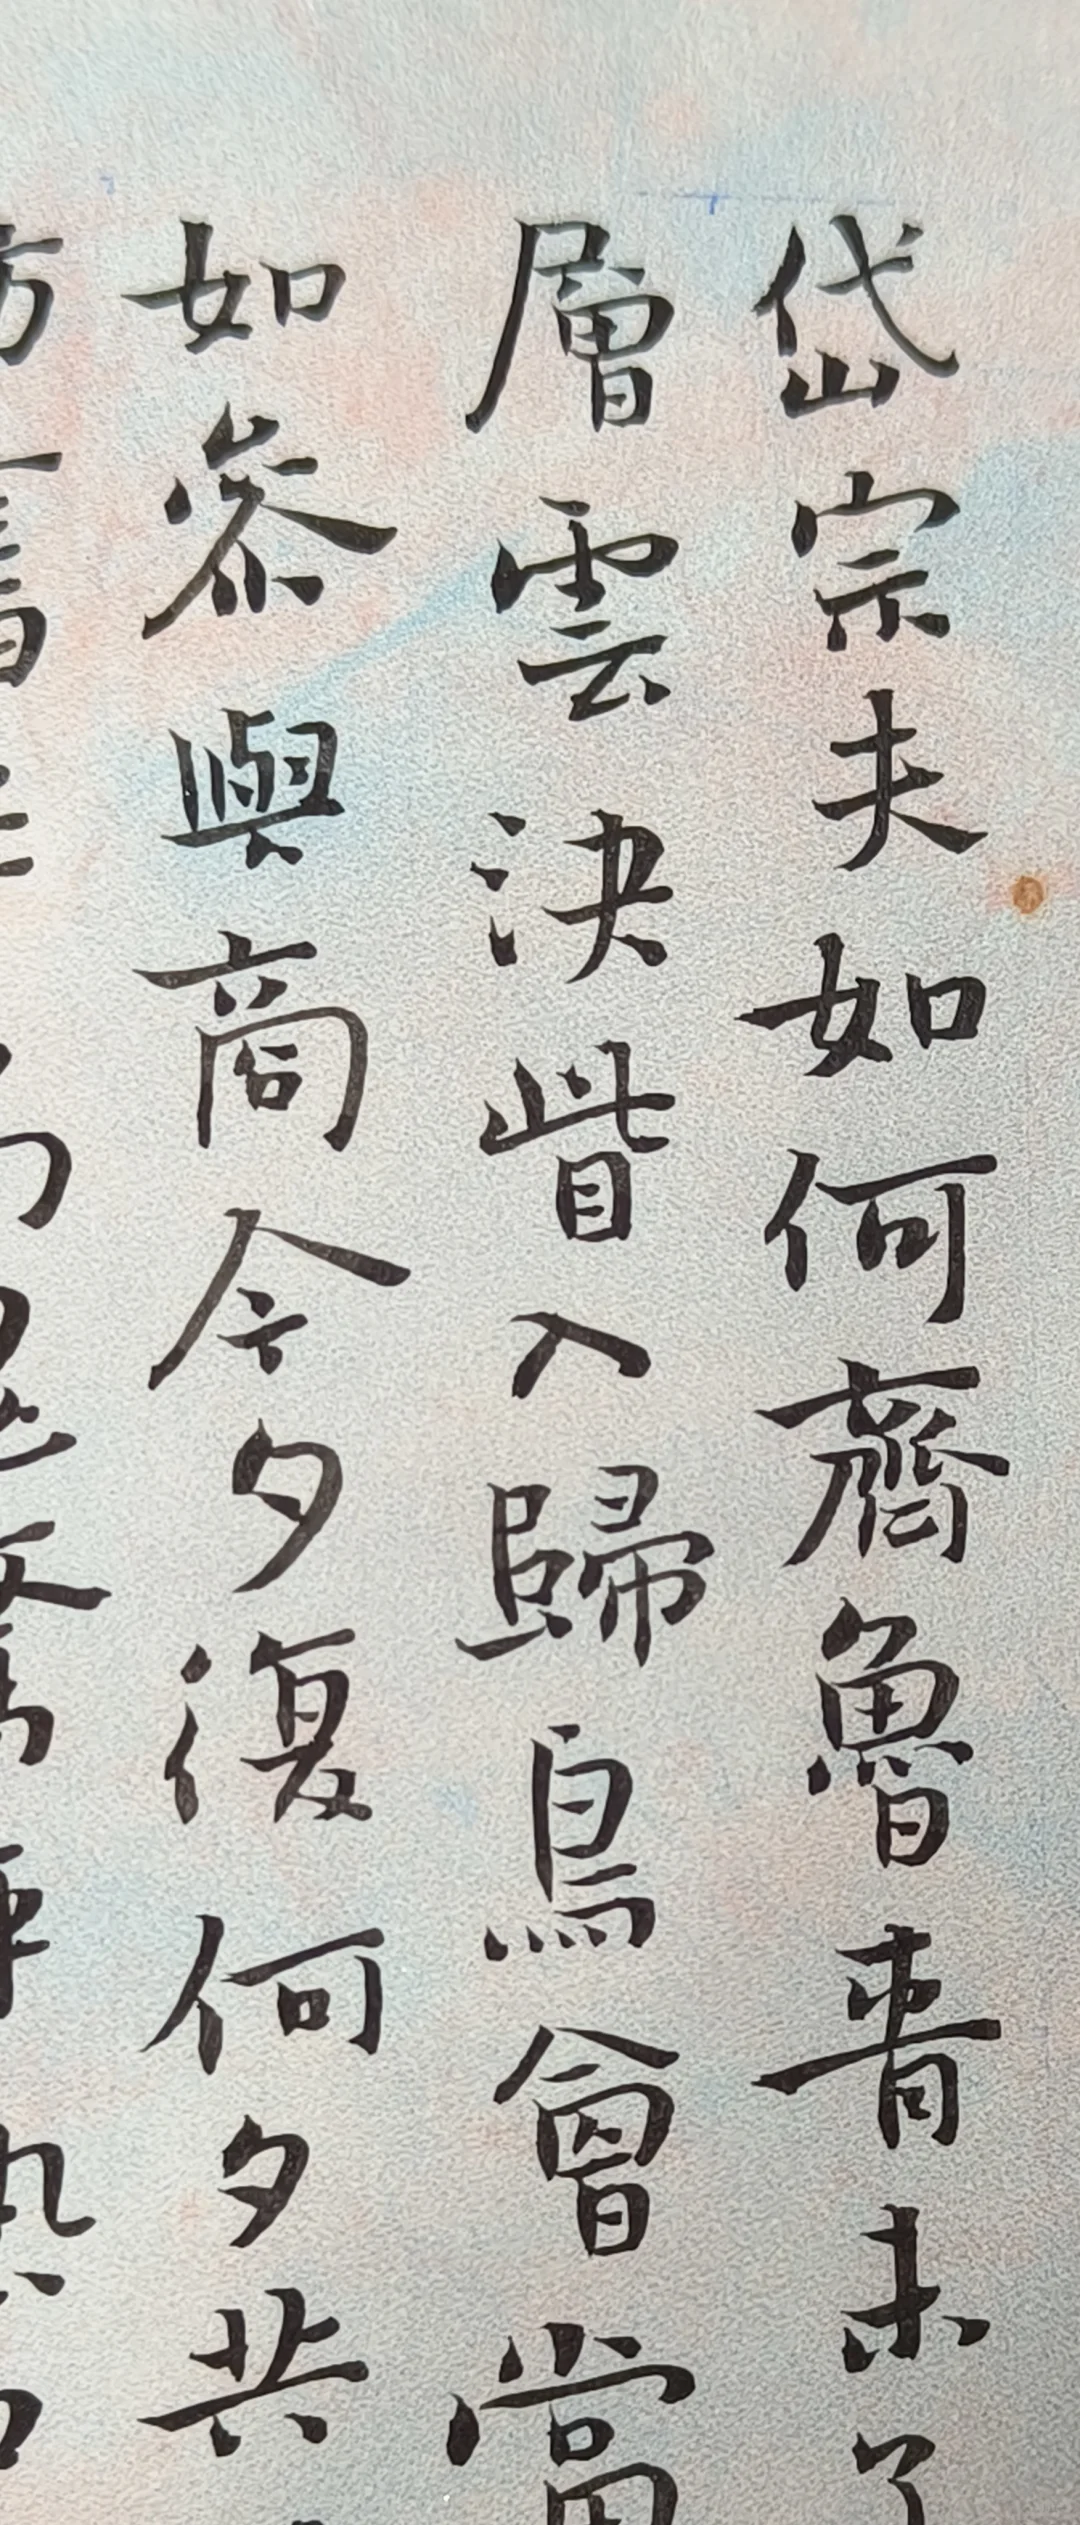 岱宗夫如何齊魯青未了
層雲決眥入歸鳥會當
如參與商今夕復何夕共
訪舊